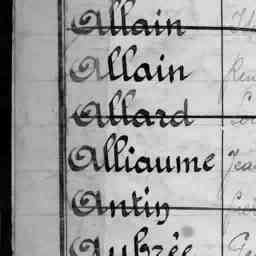 Allain
Allain
Allard
Alliaume Jea
Antin
Aubrée